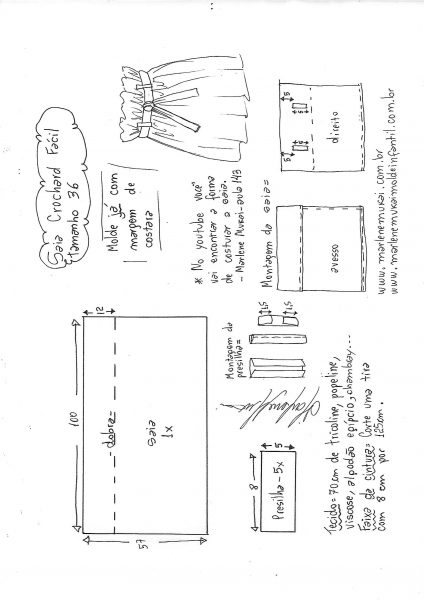 Saia Crochard Facil
tamanho 36
Molde já com
margem de
costura
* No youtube você
vai encontrar a forma
de costurar a saia.
- Marlene Mukai - aula 143
Montagem da saia =
5
5
5
5
direito
avesso
www.marlenemukai.com.br
www.marlenemukaimoldeinfantil.com.br
100
12
- dobra -
saia
1x
57
Montagem da
presilha =
1,5
1,5
8
5
Presilha - 5x
Tecido = 70cm de tricoline, popeline,
viscose, algodão egípcio, chambray...
Faixa da cintura = Corte uma tira
com 8 cm por 125cm.